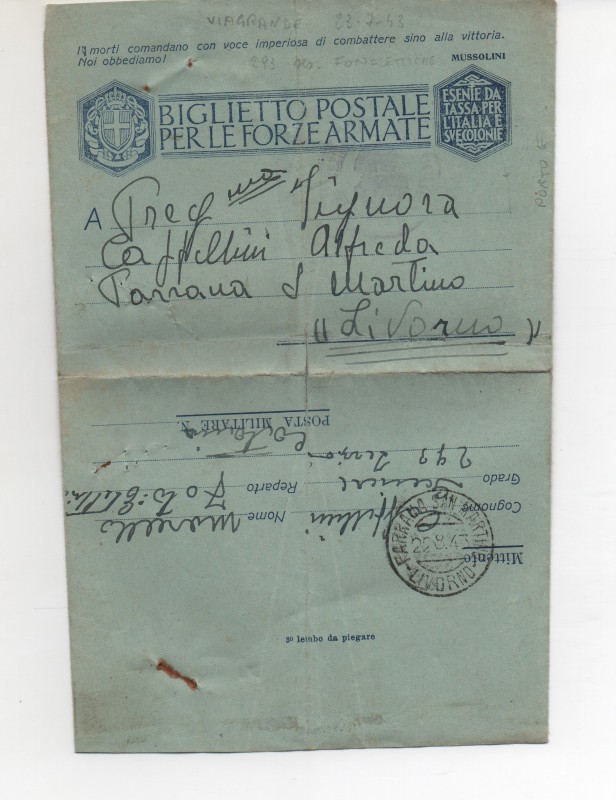 VIAGRANDE 23-7-43
I morti comandano con voce imperiosa di combattere sino alla vittoria.
Noi obbediamo! MUSSOLINI
293
BIGLIETTO POSTALE
PER LE FORZE ARMATE
ESENTE DA
TASSA·PER
L'ITALIA E
SVE COLONIE
PORTO E
A Preg ma Signora
Cappellini Alfreda
Parrana S Martino
"Livorno"
POSTA MILITARE N. Catania
Grado
Reparto
293
Cognome
Nome Marcello
Mittente
PARRANA SAN MARTINO
22.8.43
LIVORNO
3º lembo da piegare